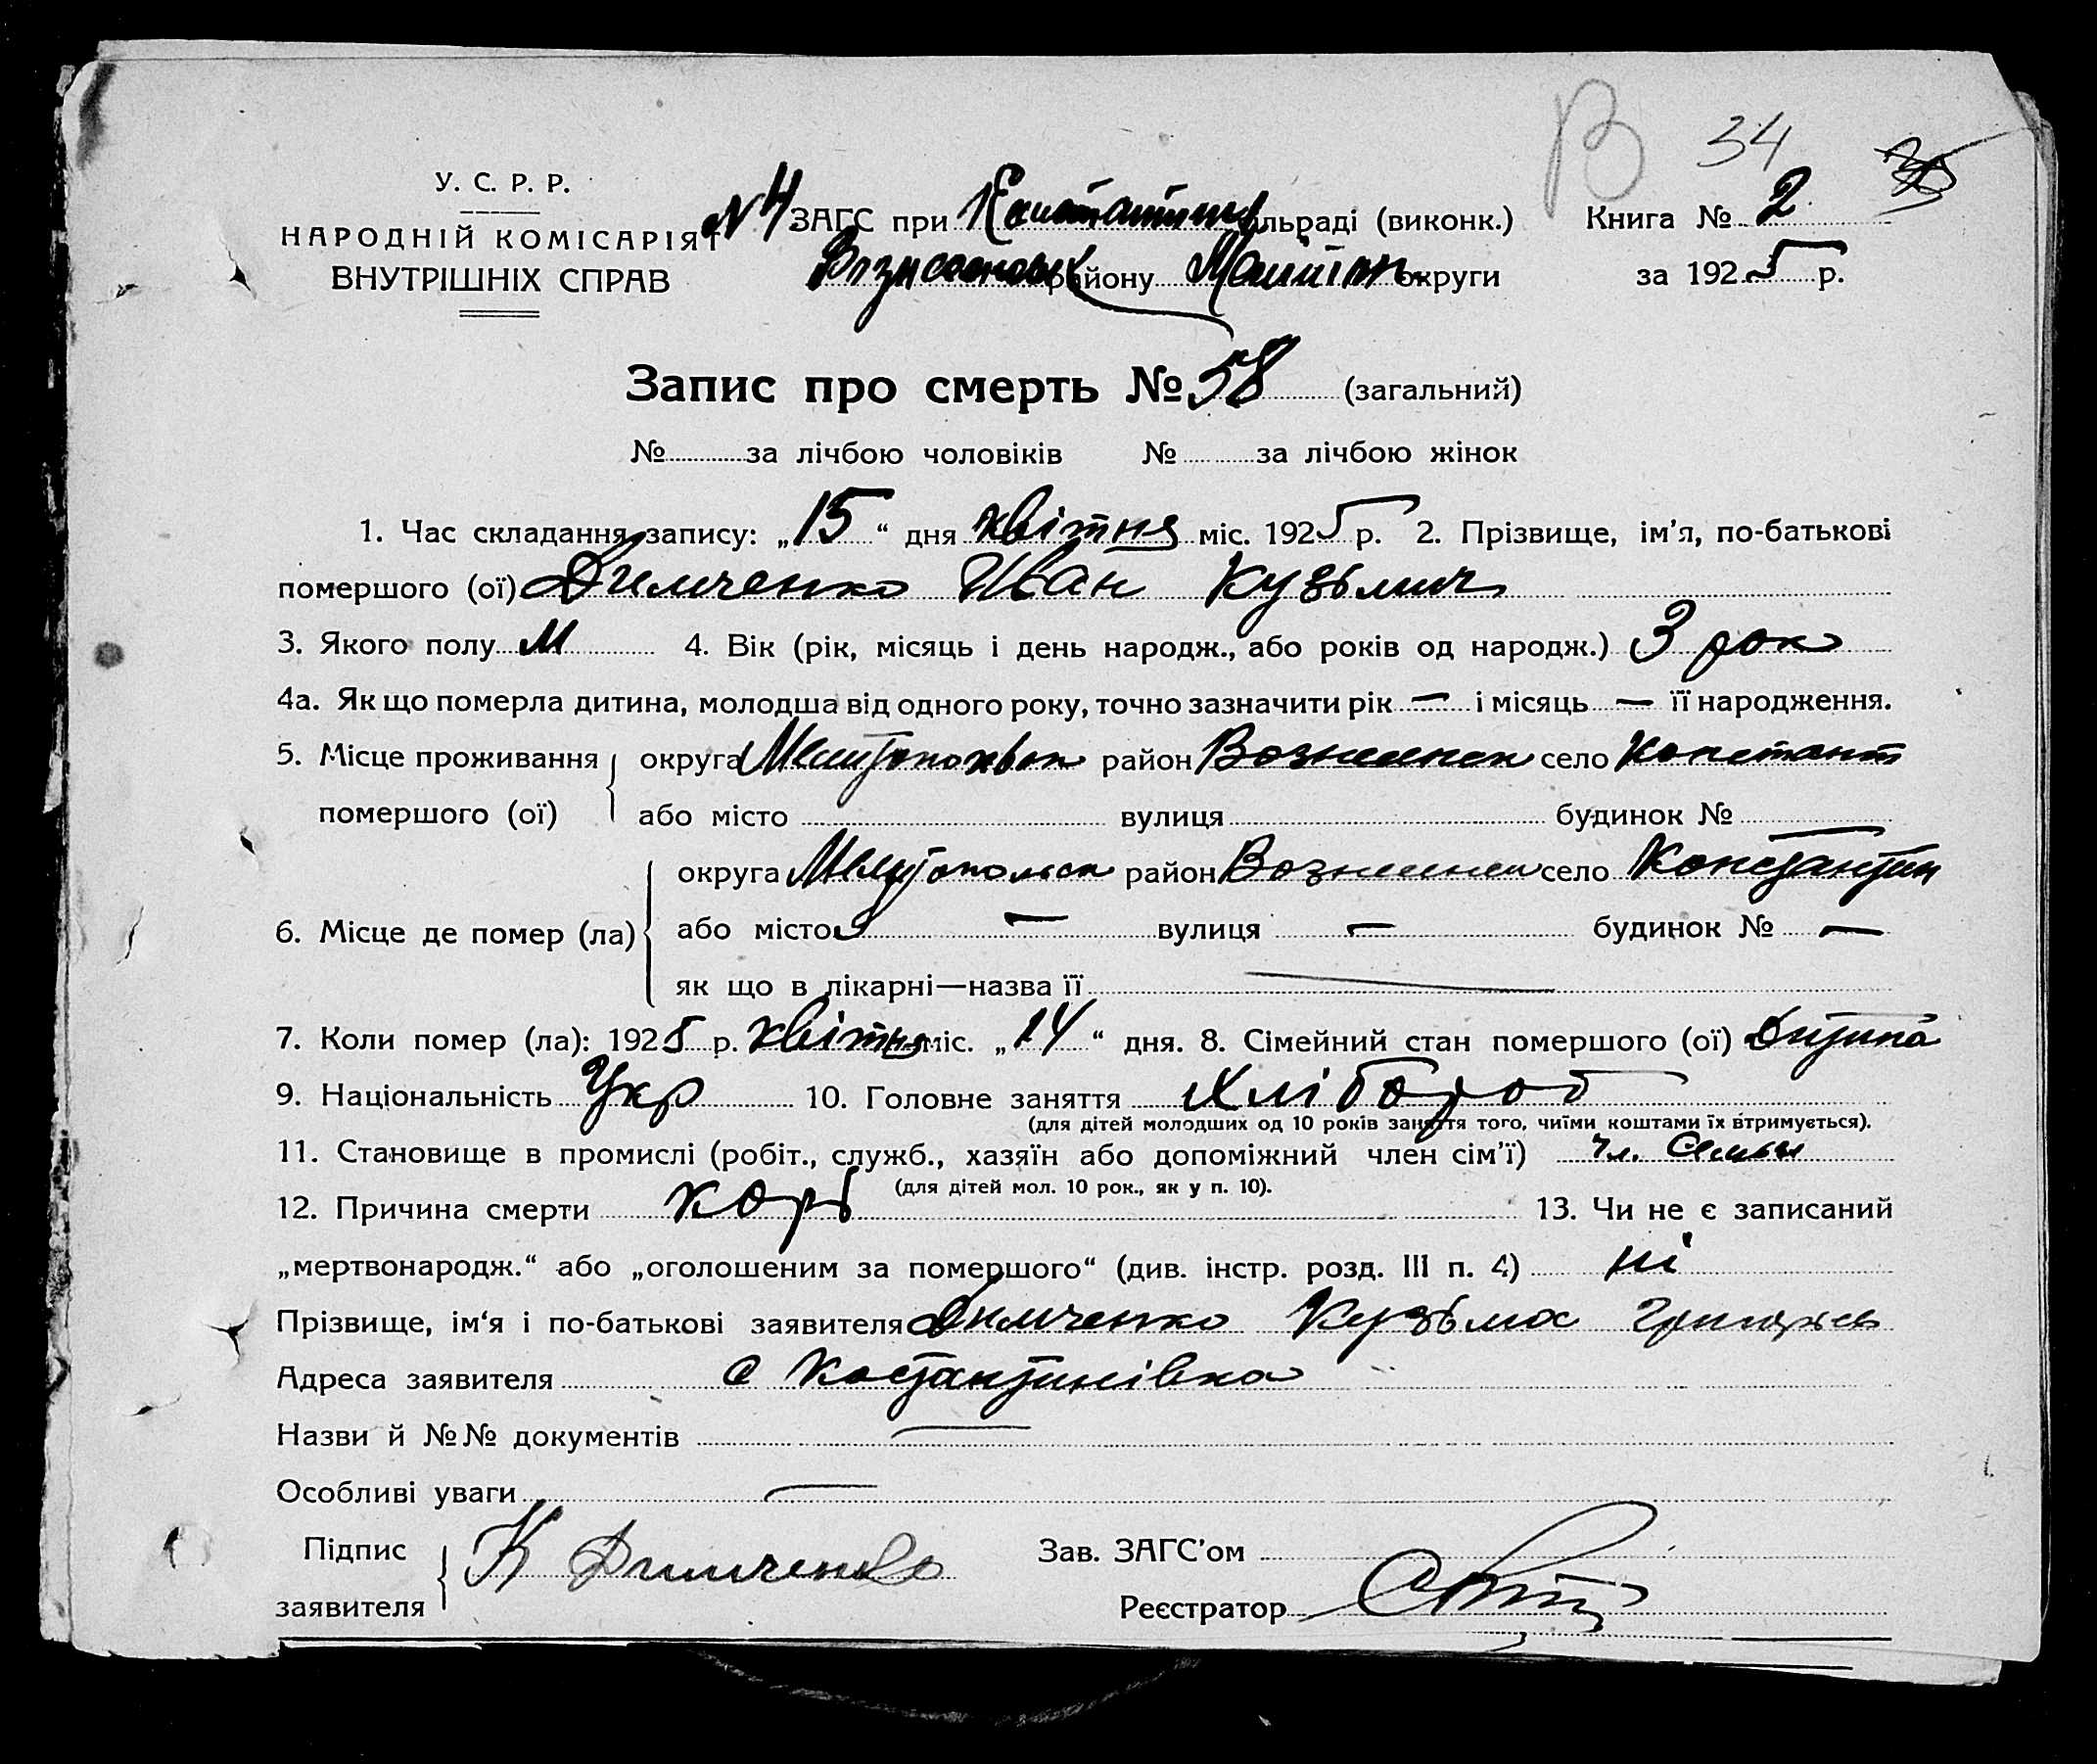 В 34
У. С. Р. Р.
НАРОДНІЙ КОМІСАРІЯТ
ВНУТРІШНІХ СПРАВ
№ 4 ЗАГС при сільраді (виконк.) Книга № 2
району округи за 1925 р.
Запис про смерть № 58 (загальний)
№ за лічбою чоловіків № за лічбою жінок
1. Час складання запису: „15“ дня квітня міс. 1925 р. 2. Прізвище, ім’я, по-батькові
помершого (ої) Димченко Іван Кузьмич
3. Якого полу М 4. Вік (рік, місяць і день народж., або років од народж.) 3 рок
4а. Як що померла дитина, молодша від одного року, точно зазначити рік — і місяць — її народження.
5. Місце проживання округа район село Констант
помершого (ої) або місто вулиця будинок №
округа Мелітопольск район село Константин
6. Місце де помер (ла) або місто — вулиця — будинок № —
як що в лікарні—назва її
7. Коли помер (ла): 1925 р. квітня міс. „14“ дня. 8. Сімейний стан помершого (ої) Дитина
9. Національність Укр 10. Головне заняття Хлібороб
(для дітей молодших од 10 років заняття того, чиїми коштами їх втримується).
11. Становище в промислі (робіт., служб., хазяїн або допоміжний член сім’ї) чл. Семьи
(для дітей мол. 10 рок., як у п. 10).
12. Причина смерти корь 13. Чи не є записаний
„мертвонародж.“ або „оголошеним за помершого“ (див. інстр. розд. III п. 4) ні
Прізвище, ім‘я і по-батькові заявителя Димченко Кузьма
Адреса заявителя с Костантинівка
Назви й №№ документів —
Особливі уваги —
Підпис К Димченко Зав. ЗАГС’ом
заявителя Реєстратор